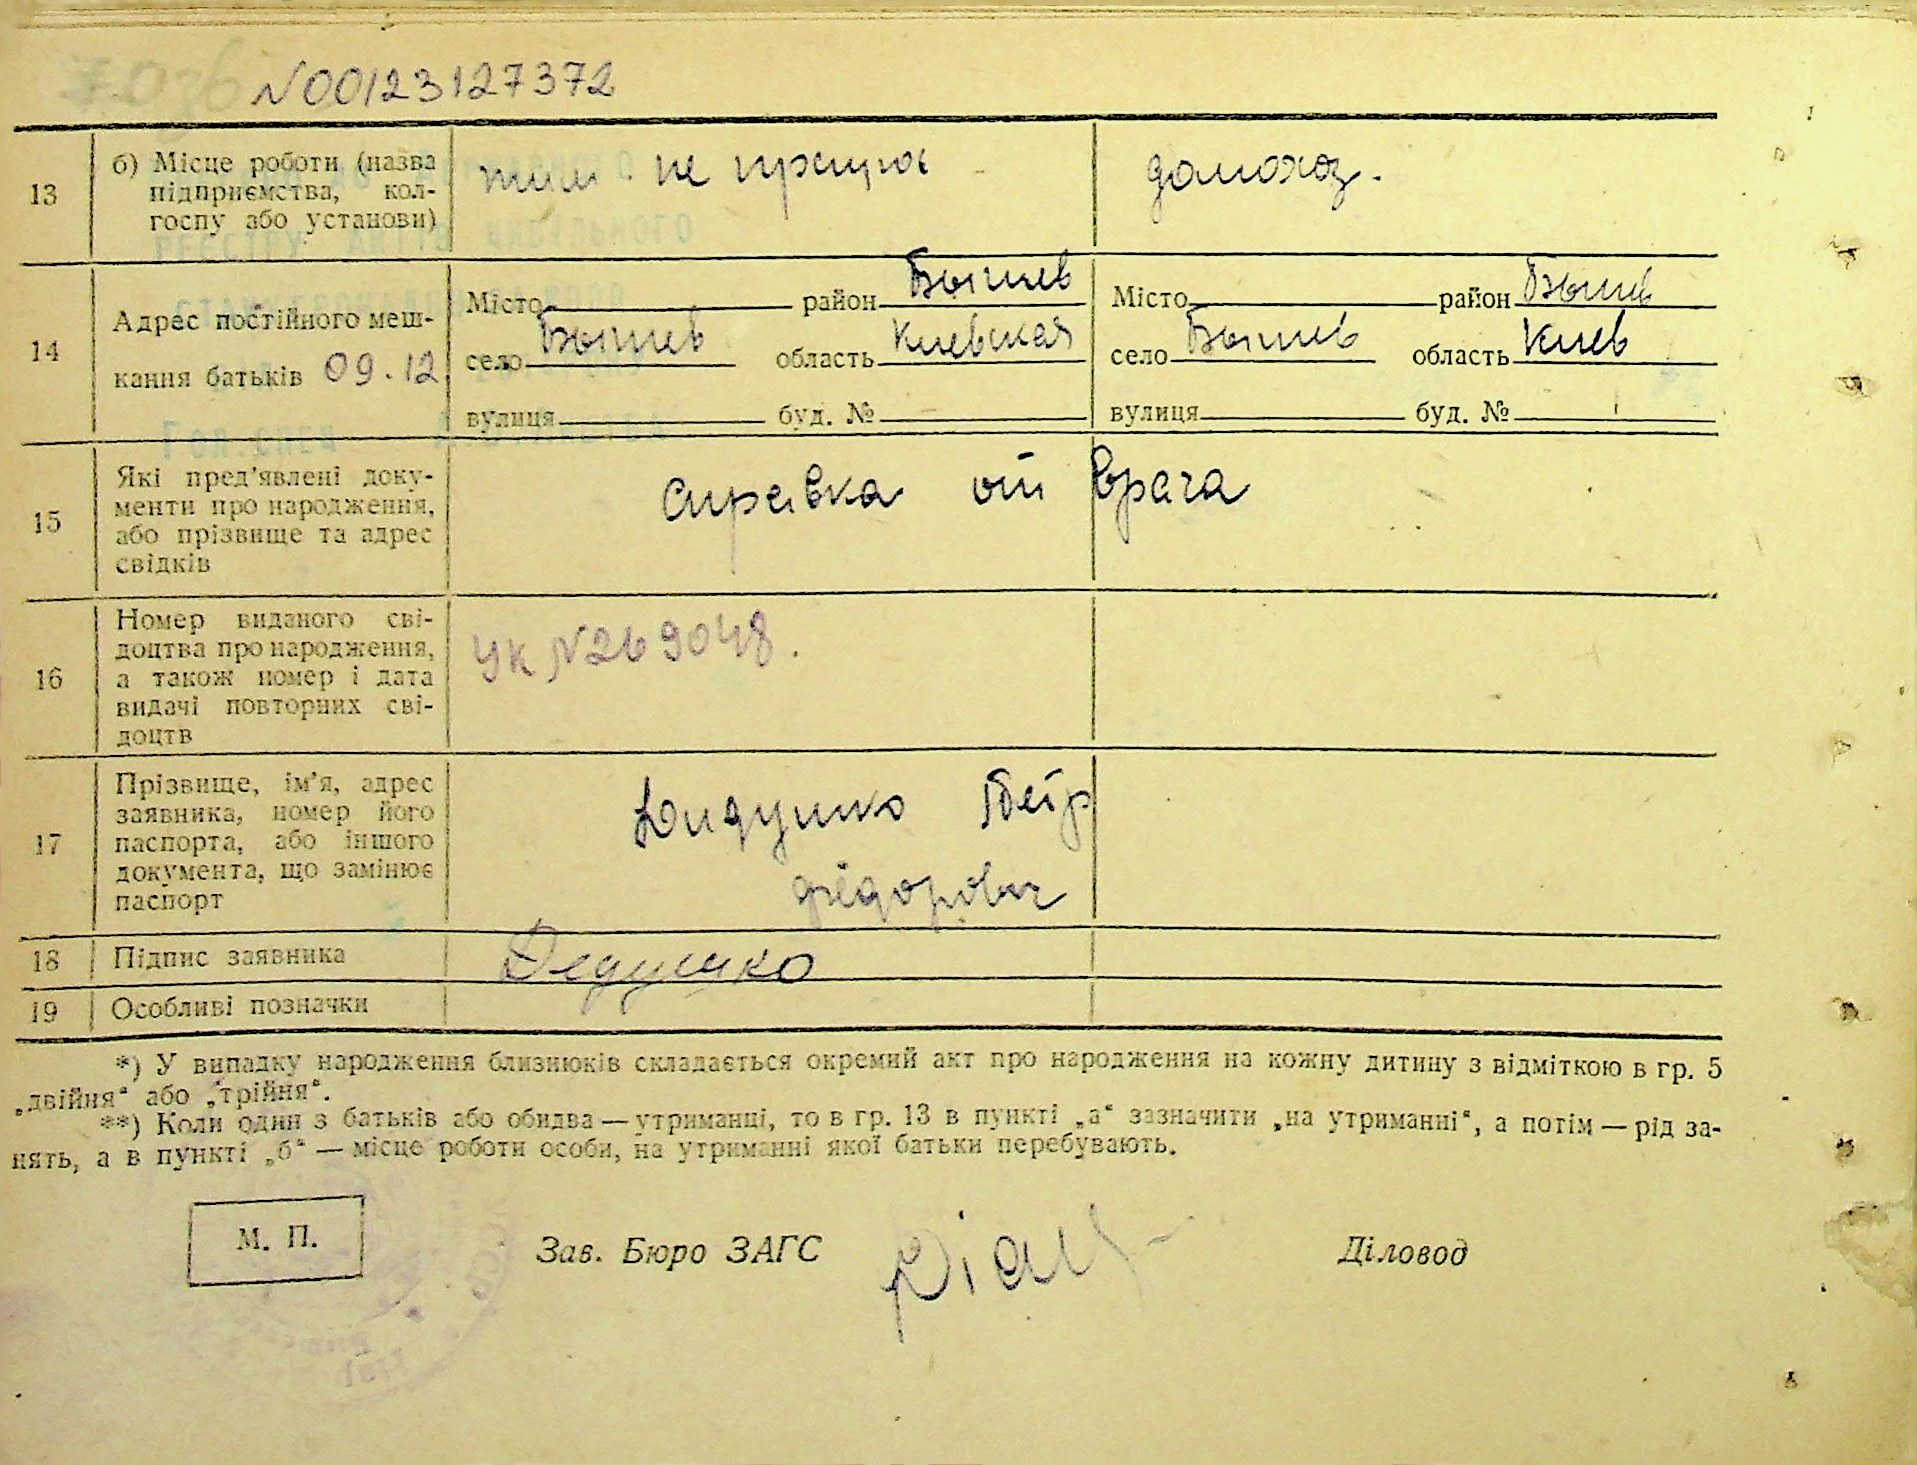 N00123127372
13
б) Місце роботи (назва
підприємства, кол-
госпу або установи)
не
домохоз.
14
Адрес постійного меш-
кання батьків 09.12
Місто район Бышев
село Бышев область Киевская
вулиця буд. №
Місто район Бышев
село Бышев область Киев
вулиця буд. №
15
Які пред'явлені доку-
менти про народження,
або прізвище та адрес
свідків
справка от врача
16
Номер виданого сві-
доцтва про народження,
а також номер і дата
видачі повторних сві-
доцтв
УК N269048.
17
Прізвище, ім'я, адрес
заявника, номер його
паспорта, або іншого
документа, що замінює
паспорт
Дидушко Петр
Фёдорович
18 Підпис заявника
Дедушко
19 Особливі позначки
*) У випадку народження близнюків складається окремий акт про народження на кожну дитину з відміткою в гр. 5
„двійня“ або „трійня“.
**) Коли один з батьків або обидва — утриманці, то в гр. 13 в пункті „а“ зазначити „на утриманні“, а потім — рід за-
нять, а в пункті „б“ — місце роботи особи, на утриманні якої батьки перебувають.
М. П.
Зав. Бюро ЗАГС
Діловод